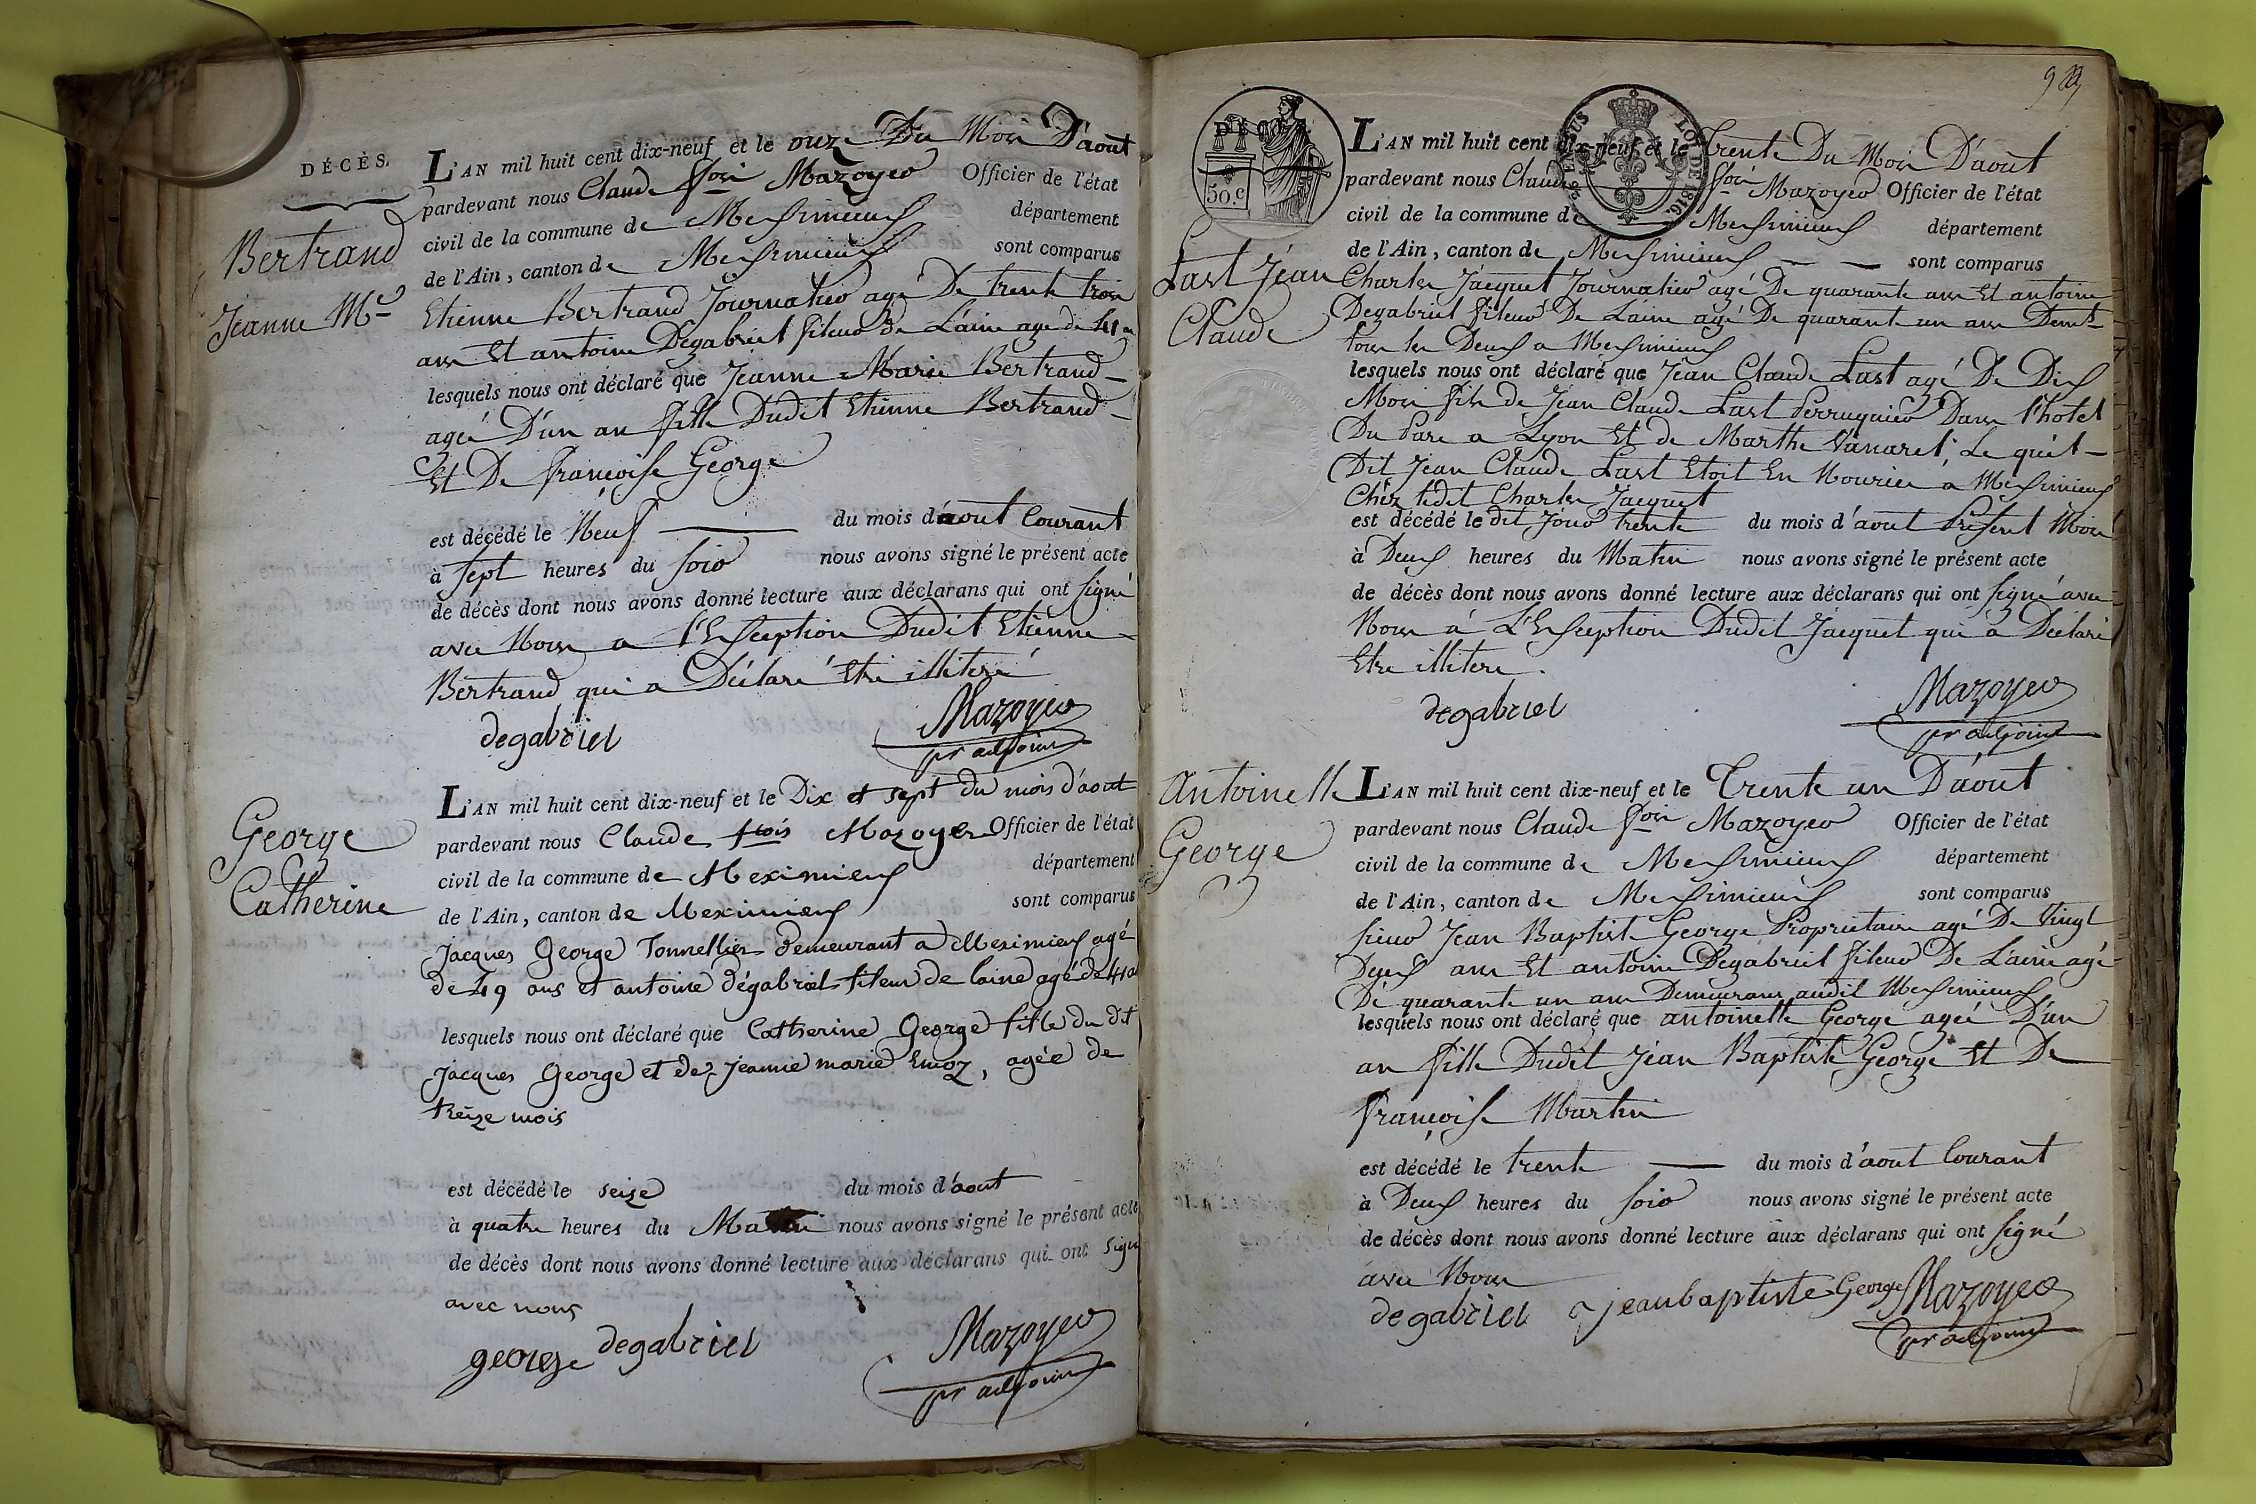 DÉCÈS.
Bertrand
Jeanne Mie
L'AN mil huit cent dix-neuf et le onze Du Mois D'aout
pardevant nous Claude fois Mazoyer Officier de l'état
civil de la commune de Messimieux département
de l'Ain, canton de Messimieux sont comparus
Etienne Bertrand Journalier agé De trente trois
ans Et antoine Degabriel fileur de Laine age de 41 an
lesquels nous ont déclaré que Jeanne Marie Bertrand
agée D'un an fille Dudit Etienne Bertrand
Et De françoise George
est décédé le Neuf du mois d'aout Courant
à sept heures du soir nous avons signé le présent acte
de décès dont nous avons donné lecture aux déclarans qui ont signé
avec Nous a l'Exception Dudit Etienne
Bertrand qui a Déclaré Etre illiteré
degabriel Mazoyer
pr adjoint
George
Catherine
L'AN mil huit cent dix-neuf et le Dix et sept du mois d'aout
pardevant nous Claude fcois Mazoyer Officier de l'état
civil de la commune de Meximieux département
de l'Ain, canton de Meximieux sont comparus
Jacques George Tonnellier demeurant a Meximieux agé
de 49 ans et antoine dégabriel fileur de laine agé de 41 a
lesquels nous ont déclaré que Catherine George fille du dit
Jacques George et de Jeanne marie , agée de
treize mois
est décédé le seize du mois d'aout
à quatre heures du Matin nous avons signé le présent acte
de décès dont nous avons donné lecture aux déclarans qui ont signé
avec nous
george degabriel Mazoyer
pr adjoint
DÉC
50.c
EN SUS
LOI DE 1816.
Last Jean
Claude
L'AN mil huit cent dix-neuf et le trente Du Mois D'aout
pardevant nous Claude fois Mazoyer Officier de l'état
civil de la commune de Messimieux département
de l'Ain, canton de Messimieux sont comparus
Charles Jacquet Journalier agé De quarante ans Et antoine
Degabriel fileur De Laine agé De quarante un ans Demt
tous les Deux a Messimieux
lesquels nous ont déclaré que Jean Claude Last agé De Dix
Mois fils de Jean Claude Last Perruquier Dans l'hotel
Du Parc a Lyon Et de Marthe Vanaret Le quel
Dit Jean Claude Last Etoit En Nourice a Messimieux
Chez ledit Charles Jacquet
est décédé le dit Jour trente du mois d'aout Présent Mois
à Deux heures du Matin nous avons signé le présent acte
de décès dont nous avons donné lecture aux déclarans qui ont signé avec
Nous à L'Exception Dudit Jacquet qui a Déclaré
Etre illitere.
degabriel Mazoyer
pr adjoint
Antoinette
George
L'AN mil huit cent dix-neuf et le Trente un D'aout
pardevant nous Claude fois Mazoyer Officier de l'état
civil de la commune de Messimieux département
de l'Ain, canton de Messimieux sont comparus
sieur Jean Baptiste George Propriétaire agé De Vingt
Deux ans Et antoine Degabriel fileur De Laine agé
De quarante un ans Demeurans audit Messimieux
lesquels nous ont déclaré que antoinette George agée D'un
an fille Dudit Jean Baptiste George Et De
françoise Martin
est décédé le trente du mois d'aout Courant
à Deux heures du soir nous avons signé le présent acte
de décès dont nous avons donné lecture aux déclarans qui ont signé
avec Nous
degabriel jeanbaptiste George Mazoyer
pr adjoint